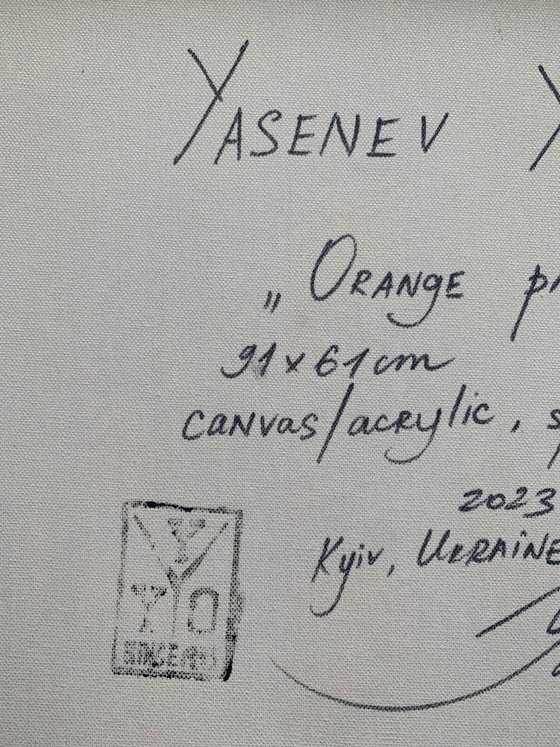 YASENEV Y
„ ORANGE
91 x 61 cm
canvas/acrylic, s
2023
Kyiv, UKRAINE
Y
Y Y O
SINCE